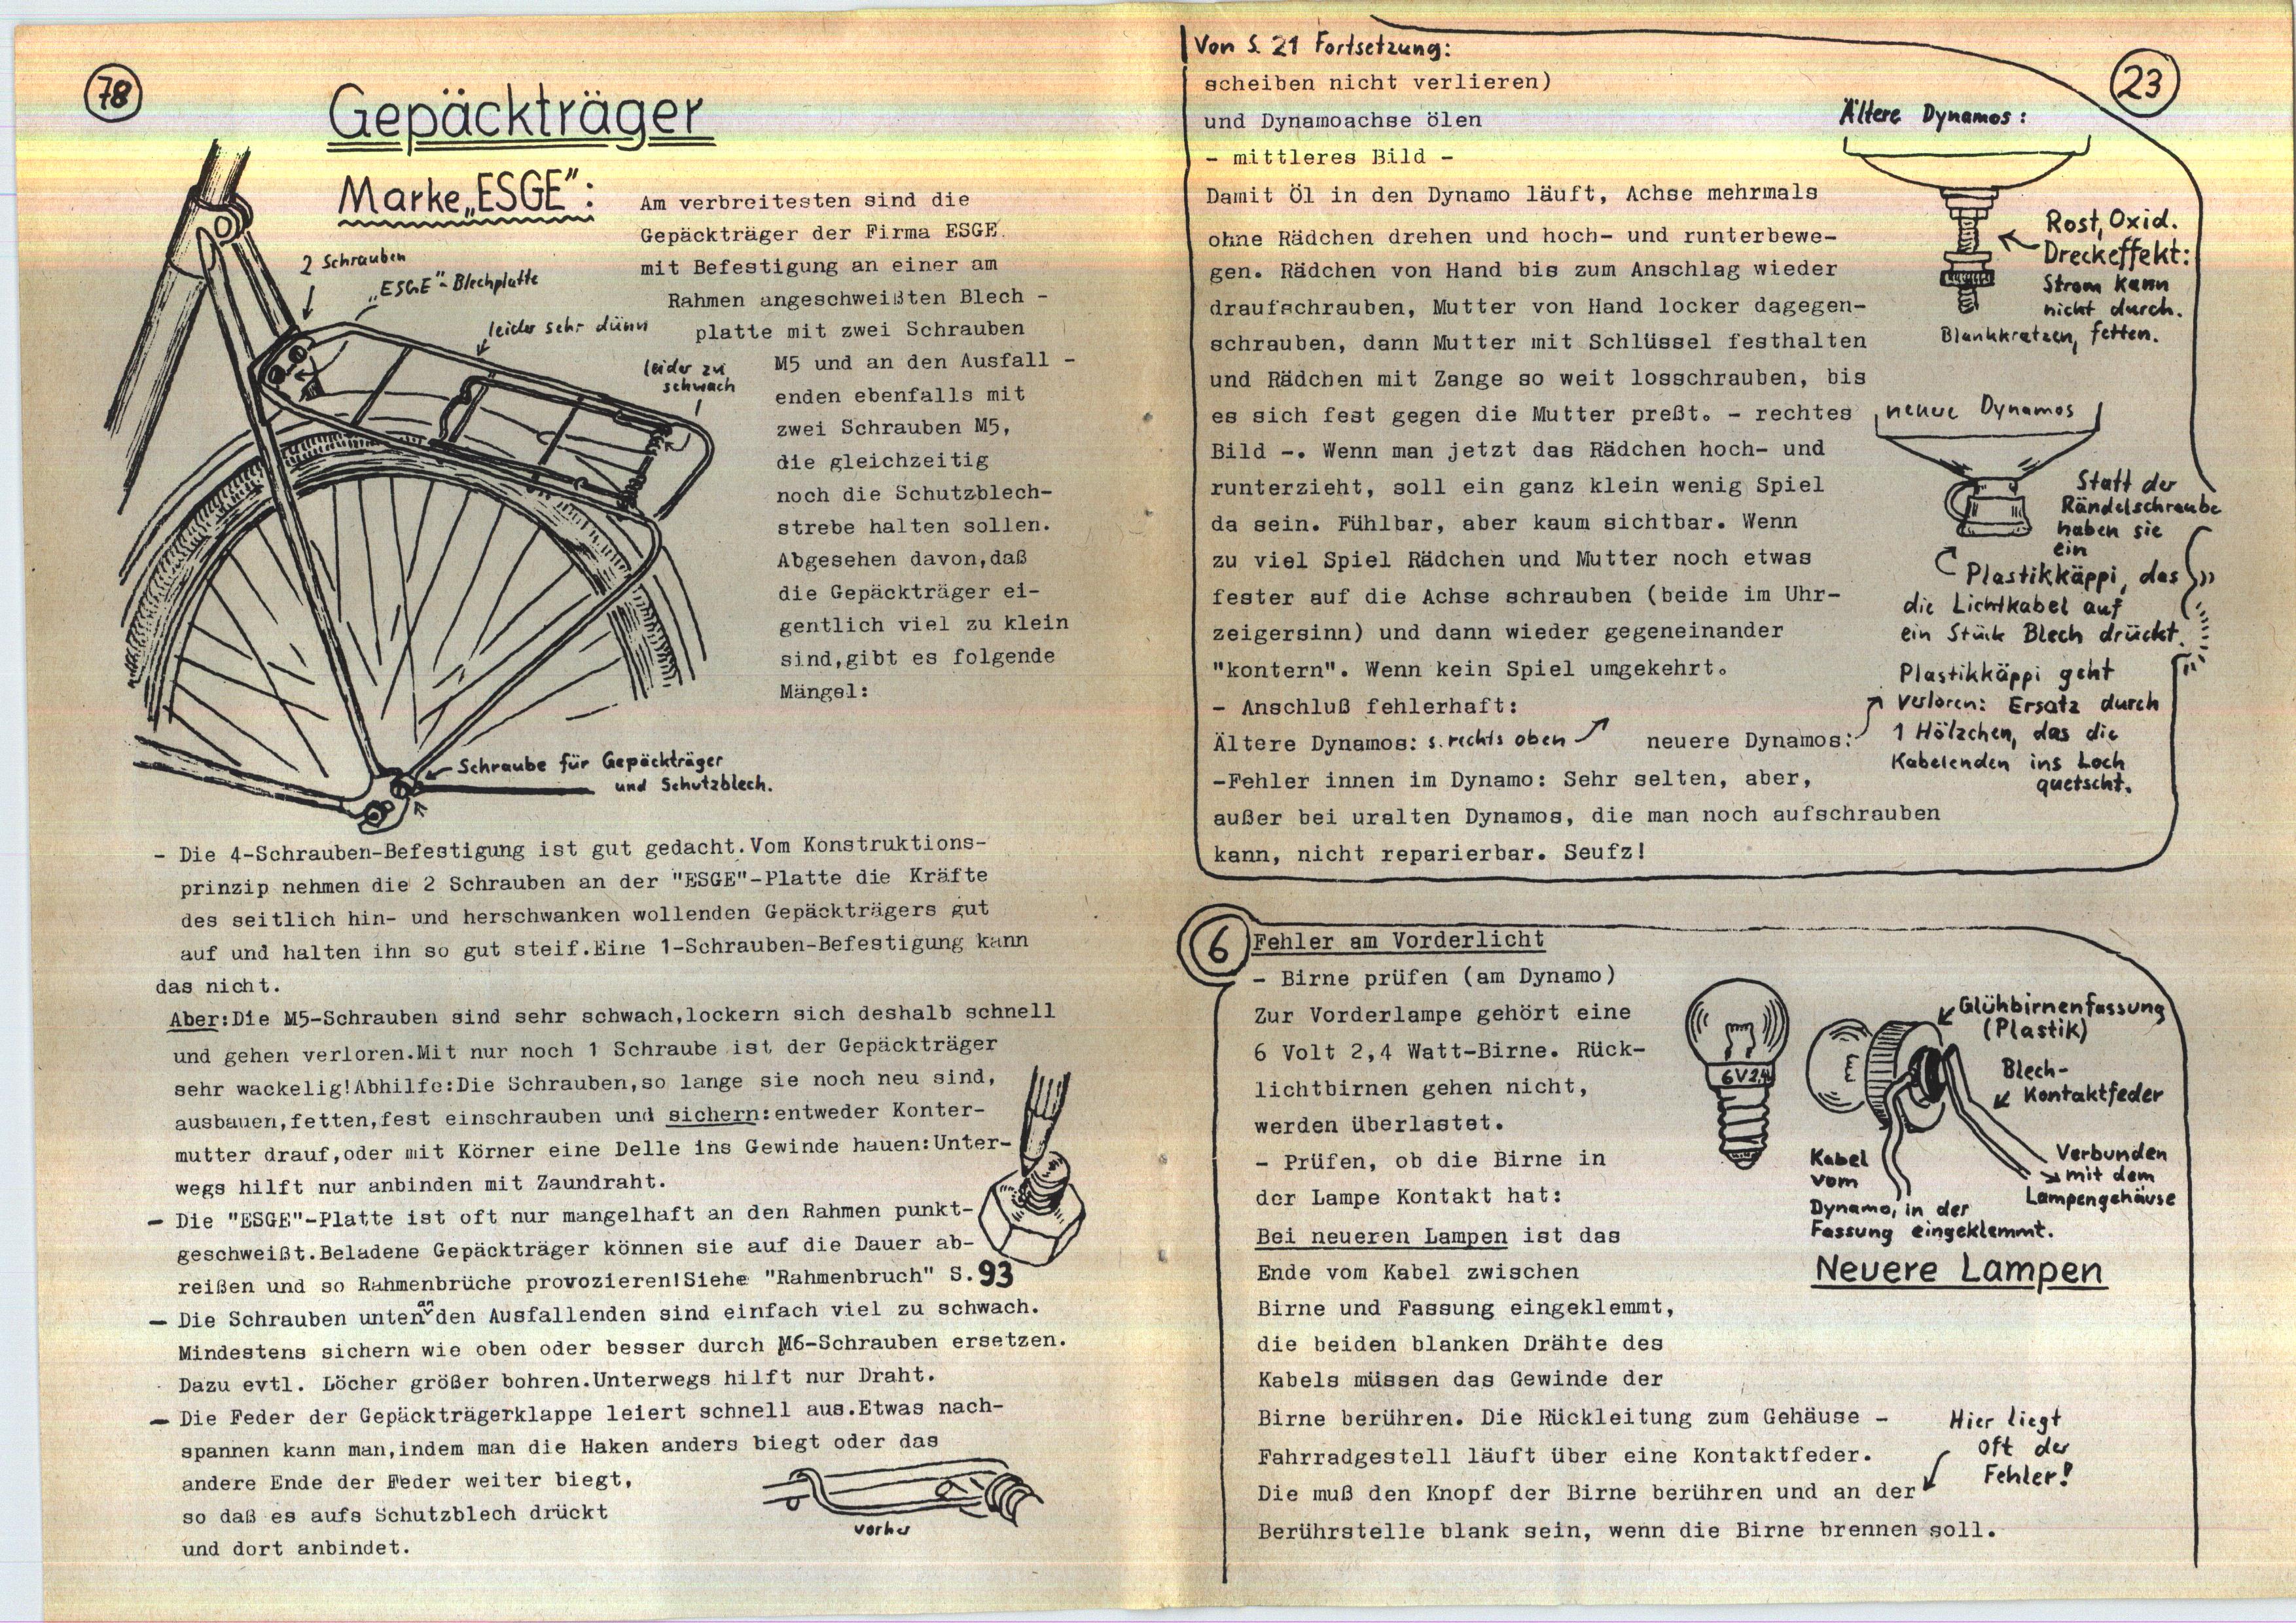 78
Gepäckträger
Marke „ESGE":
2 Schrauben
„ESGE"-Blechplatte
leider sehr dünn
leider zu
schwach
Am verbreitesten sind die
Gepäckträger der Firma ESGE
mit Befestigung an einer am
Rahmen angeschweißten Blech -
platte mit zwei Schrauben
M5 und an den Ausfall -
enden ebenfalls mit
zwei Schrauben M5,
die gleichzeitig
noch die Schutzblech-
strebe halten sollen.
Abgesehen davon,daß
die Gepäckträger ei-
gentlich viel zu klein
sind,gibt es folgende
Mängel:
Schraube für Gepäckträger
und Schutzblech.
- Die 4-Schrauben-Befestigung ist gut gedacht.Vom Konstruktions-
prinzip nehmen die 2 Schrauben an der "ESGE"-Platte die Kräfte
des seitlich hin- und herschwanken wollenden Gepäckträgers gut
auf und halten ihn so gut steif.Eine 1-Schrauben-Befestigung kann
das nicht.
Aber:Die M5-Schrauben sind sehr schwach,lockern sich deshalb schnell
und gehen verloren.Mit nur noch 1 Schraube ist der Gepäckträger
sehr wackelig!Abhilfe:Die Schrauben,so lange sie noch neu sind,
ausbauen,fetten,fest einschrauben und sichern:entweder Konter-
mutter drauf,oder mit Körner eine Delle ins Gewinde hauen:Unter-
wegs hilft nur anbinden mit Zaundraht.
- Die "ESGE"-Platte ist oft nur mangelhaft an den Rahmen punkt-
geschweißt.Beladene Gepäckträger können sie auf die Dauer ab-
reißen und so Rahmenbrüche provozieren!Siehe "Rahmenbruch" S.93
- Die Schrauben unten an den Ausfallenden sind einfach viel zu schwach.
Mindestens sichern wie oben oder besser durch M6-Schrauben ersetzen.
Dazu evtl. Löcher größer bohren.Unterwegs hilft nur Draht.
- Die Feder der Gepäckträgerklappe leiert schnell aus.Etwas nach-
spannen kann man,indem man die Haken anders biegt oder das
andere Ende der Feder weiter biegt,
so daß es aufs Schutzblech drückt
und dort anbindet.
vorher
23
Von S. 21 Fortsetzung:
scheiben nicht verlieren)
und Dynamoachse ölen
- mittleres Bild -
Damit Öl in den Dynamo läuft, Achse mehrmals
ohne Rädchen drehen und hoch- und runterbewe-
gen. Rädchen von Hand bis zum Anschlag wieder
draufschrauben, Mutter von Hand locker dagegen-
schrauben, dann Mutter mit Schlüssel festhalten
und Rädchen mit Zange so weit losschrauben, bis
es sich fest gegen die Mutter preßt. - rechtes
Bild -. Wenn man jetzt das Rädchen hoch- und
runterzieht, soll ein ganz klein wenig Spiel
da sein. Fühlbar, aber kaum sichtbar. Wenn
zu viel Spiel Rädchen und Mutter noch etwas
fester auf die Achse schrauben (beide im Uhr-
zeigersinn) und dann wieder gegeneinander
"kontern". Wenn kein Spiel umgekehrt.
- Anschluß fehlerhaft:
Ältere Dynamos: s. rechts oben neuere Dynamos:
-Fehler innen im Dynamo: Sehr selten, aber,
außer bei uralten Dynamos, die man noch aufschrauben
kann, nicht reparierbar. Seufz!
Ältere Dynamos:
Rost, Oxid.
Dreckeffekt:
Strom kann
nicht durch.
Blankkratzen, fetten.
neuere Dynamos
Statt der
Rändelschraube
haben sie
ein
Plastikkäppi, das
die Lichtkabel auf
ein Stück Blech drückt.
Plastikkäppi geht
verloren: Ersatz durch
1 Hölzchen, das die
Kabelenden ins Loch
quetscht.
6
Fehler am Vorderlicht
- Birne prüfen (am Dynamo)
Zur Vorderlampe gehört eine
6 Volt 2,4 Watt-Birne. Rück-
lichtbirnen gehen nicht,
werden überlastet.
- Prüfen, ob die Birne in
der Lampe Kontakt hat:
Bei neueren Lampen ist das
Ende vom Kabel zwischen
Birne und Fassung eingeklemmt,
die beiden blanken Drähte des
Kabels müssen das Gewinde der
Birne berühren. Die Rückleitung zum Gehäuse -
Fahrradgestell läuft über eine Kontaktfeder.
Die muß den Knopf der Birne berühren und an der
Berührstelle blank sein, wenn die Birne brennen soll.
6V2,4
Glühbirnenfassung
(Plastik)
Blech-
Kontaktfeder
Verbunden
mit dem
Lampengehäuse
Kabel
vom
Dynamo, in der
Fassung eingeklemmt.
Neuere Lampen
Hier liegt
oft der
Fehler!